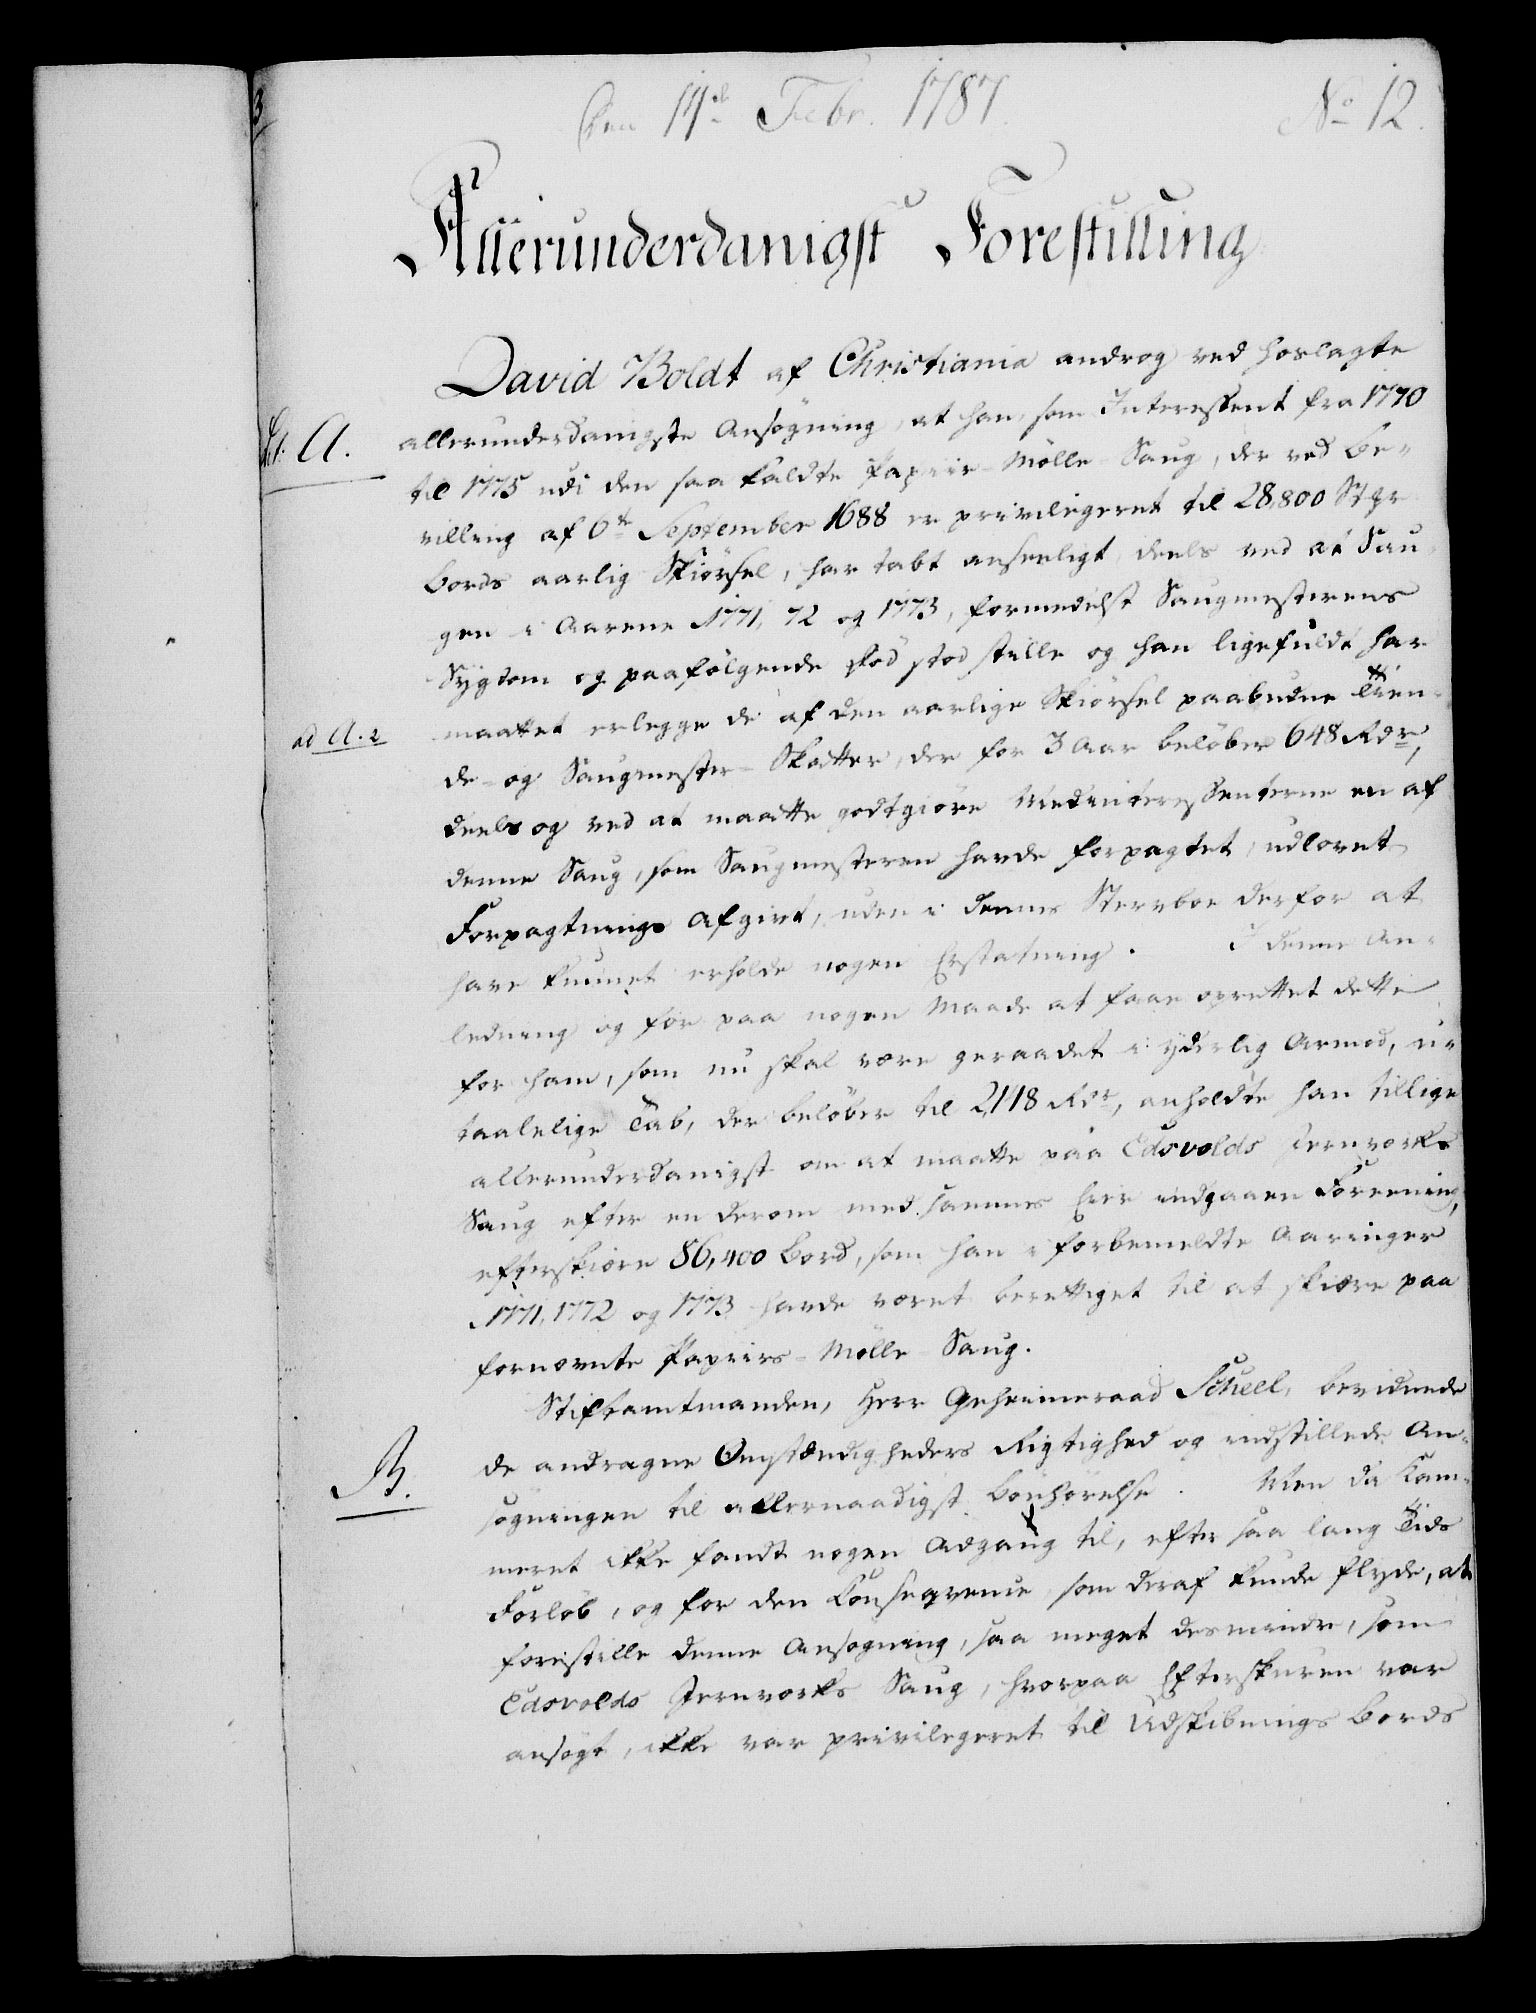 Den 14de Febr. 1787.
No 12.
Allerunderdanigst Forestilling
David Boldt af Christiania androg ved hoslagte
Lit. A.
allerunderdanigste Ansøgning, at han, som Interessent fra 1770
til 1775 udi den saa kaldte Papiir-Mølle-Saug, der ved Be-
villing af 6te September 1688 er privilegeret til 28,800 Stkr
Bords aarlig Skiørsel, har tabt anseeligt deels ved at Sau-
gen i Aarene 1771, 72 og 1773, formedelst Saugmesterens
Sygdom og paafølgende Død stod stille og han ligefuldt har
ad A. 2
maattet erlegge de af den aarlige Skiørsel paabudne Tien-
de- og Saugmester-Skatter, der for 3 Aar beløber 648 Rdr,
deels og ved at maatte godtgiøre Medinteressenterne en af
denne Saug, som Saugmesteren havde forpagtet, udlovet
Forpagtnings Afgivt, uden i dennes Stervboe derfor at
have kunnet erholde nogen Erstatning. I denne An-
ledning og for paa nogen Maade at faae oprettet dette
for ham, som nu skal være geraadet i yderlig Armod, u-
taalelige Tab, der beløber til 2,148 Rdr, anholdte han tillige
allerunderdanigst om at maatte paa Edsvolds Jernværks
Saug efter en derom med sammes Eier indgaaen Foreening,
efterskiære 86,400 Bord, som han i forbemeldte Aaringer
1771, 1772 og 1773 havde været berettiget til at skiære paa
fornævnte Papiirs-Mølle-Saug.
Stiftamtmanden, Herr Geheimeraad Scheel, bevidnede
B.
de andragne Omstændigheders Rigtighed og indstillede An-
søgningen til allernaadigst Bønhørelse. Men da Kam-
meret ikke fandt nogen Adgang til, efter saa lang Tids
Forløb, og for den Conseqvence som deraf kunde flyde, at
forestille denne Ansøgning, saa meget desmindre, som
Edsvolds Jernværks Saug, hvorpaa Efterskuren var
ansøgt, ikke var privilegeret til Udskibnings Bords